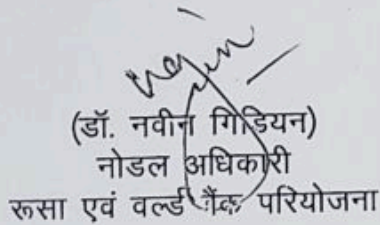 (डॉ. नवीन गिडियन)
नोडल अधिकारी
रूसा एवं वर्ल्ड बैंक परियोजना